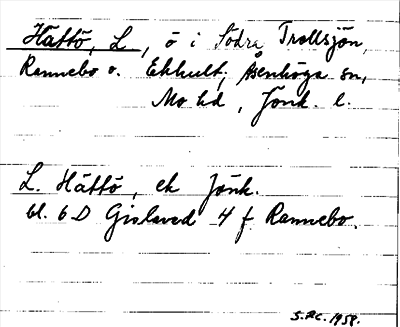 Hättö, L, ö i Södra Trollsjön,
Rannebo o. Ekhult, Åsenhöga sn,
Mo hd, Jönk. l.
L. Hättö, ek Jönk.
bl. 6D Gislaved 4 f Rannebo.
1958.